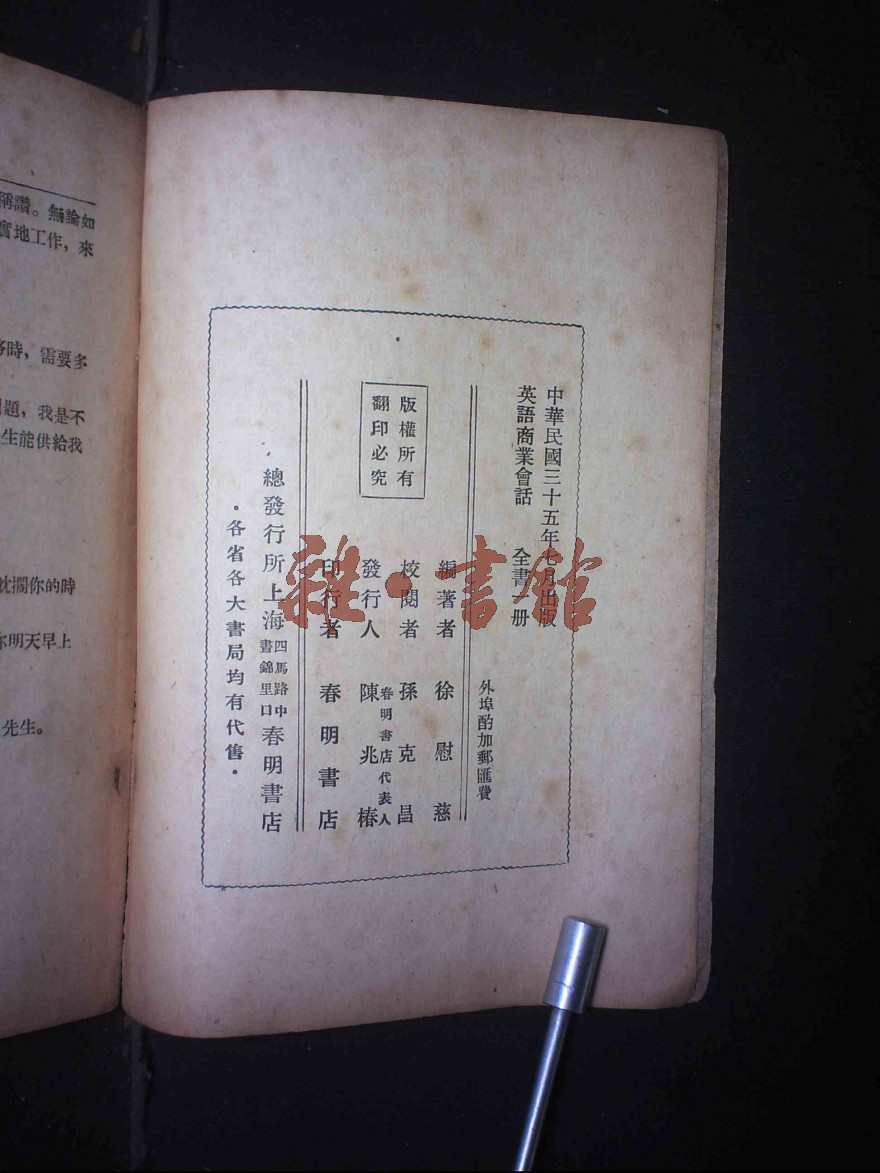 中華民國三十五年七月出版
英語商業會話 全書一册
外埠酌加郵匯費
編著者 徐慰慈
校閱者 孫克昌
春明書店代表人
發行人 陳兆椿
印行者 春明書店
版權所有
翻印必究
總發行所上海四馬路中晝錦里口春明書店
·各省各大書局均有代售·
稱讚。無論如
實地工作,來
時,需要多
題,我是不
生能供給我
你的時
你明天早上
先生。
雜·書館